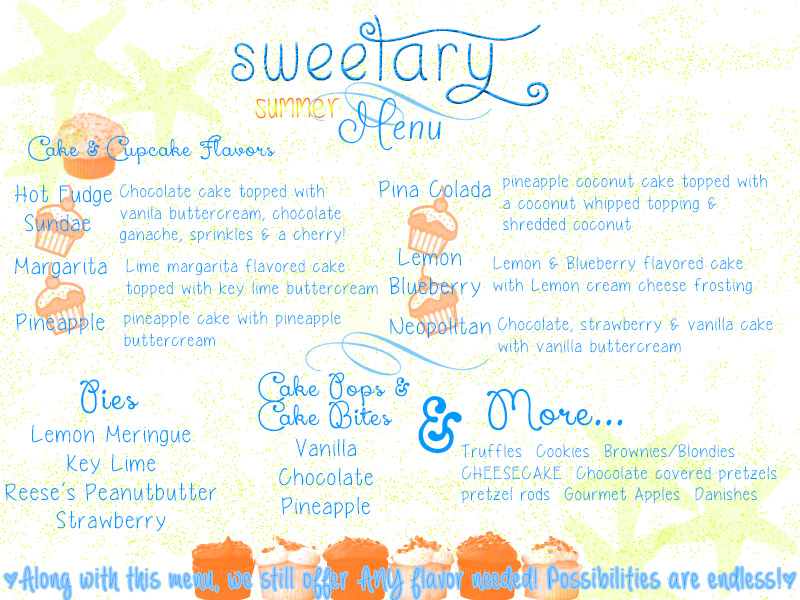 sweetary
summer
Menu
Cake & Cupcake Flavors
Hot Fudge
Sundae
Chocolate cake topped with
vanila buttercream, chocolate
ganache, sprinkles & a cherry!
Margarita
Lime margarita flavored cake
topped with key lime buttercream
Pineapple
pineapple cake with pineapple
buttercream
Pina Colada
pineapple coconut cake topped with
a coconut whipped topping &
shredded coconut
Lemon
Blueberry
Lemon & Blueberry flavored cake
with Lemon cream cheese frosting
Neopolitan
Chocolate, strawberry & vanilla cake
with vanilla buttercream
Pies
Lemon Meringue
Key Lime
Reese's Peanutbutter
Strawberry
Cake Pops &
Cake Bites
Vanilla
Chocolate
Pineapple
& More...
Truffles Cookies Brownies/Blondies
CHEESECAKE Chocolate covered pretzels
pretzel rods Gourmet Apples Danishes
♥Along with this menu, we still offer ANY flavor needed! Possibilities are endless!♥